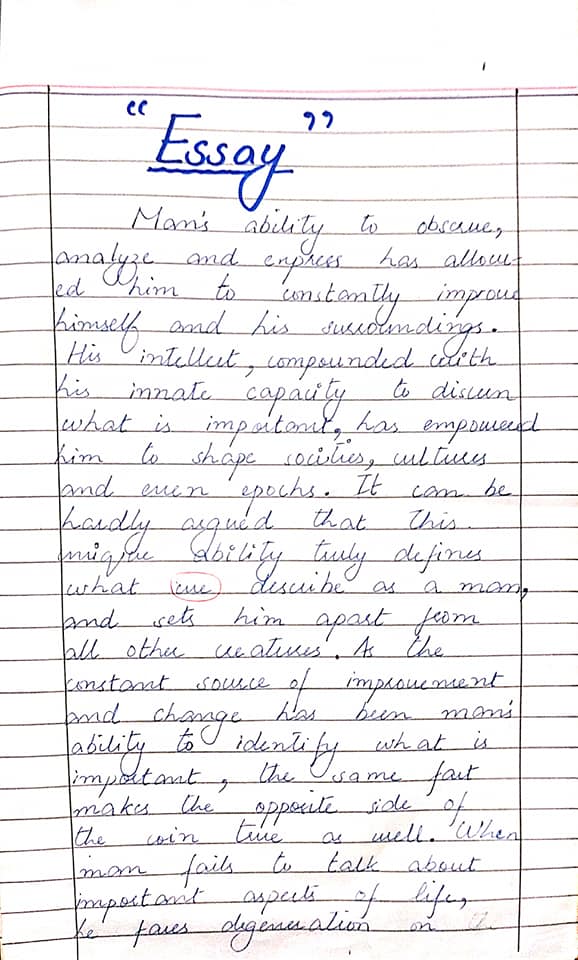 “
Essay ”
Man's ability to observe,
analyze and express has allow-
ed him to constantly improve
himself and his surroundings.
His intellect, compounded with
his innate capacity to discern
what is important, has empowered
him to shape societies, cultures
and even epochs. It can be
hardly argued that this
unique ability truly defines
what we describe as a man,
and sets him apart from
all other creatures. As the
constant source of improvement
and change has been man's
ability to identify what is
important, the same fact
makes the opposite side of
the coin true as well. When
man fails to talk about
important aspects of life,
he faces degeneration on a